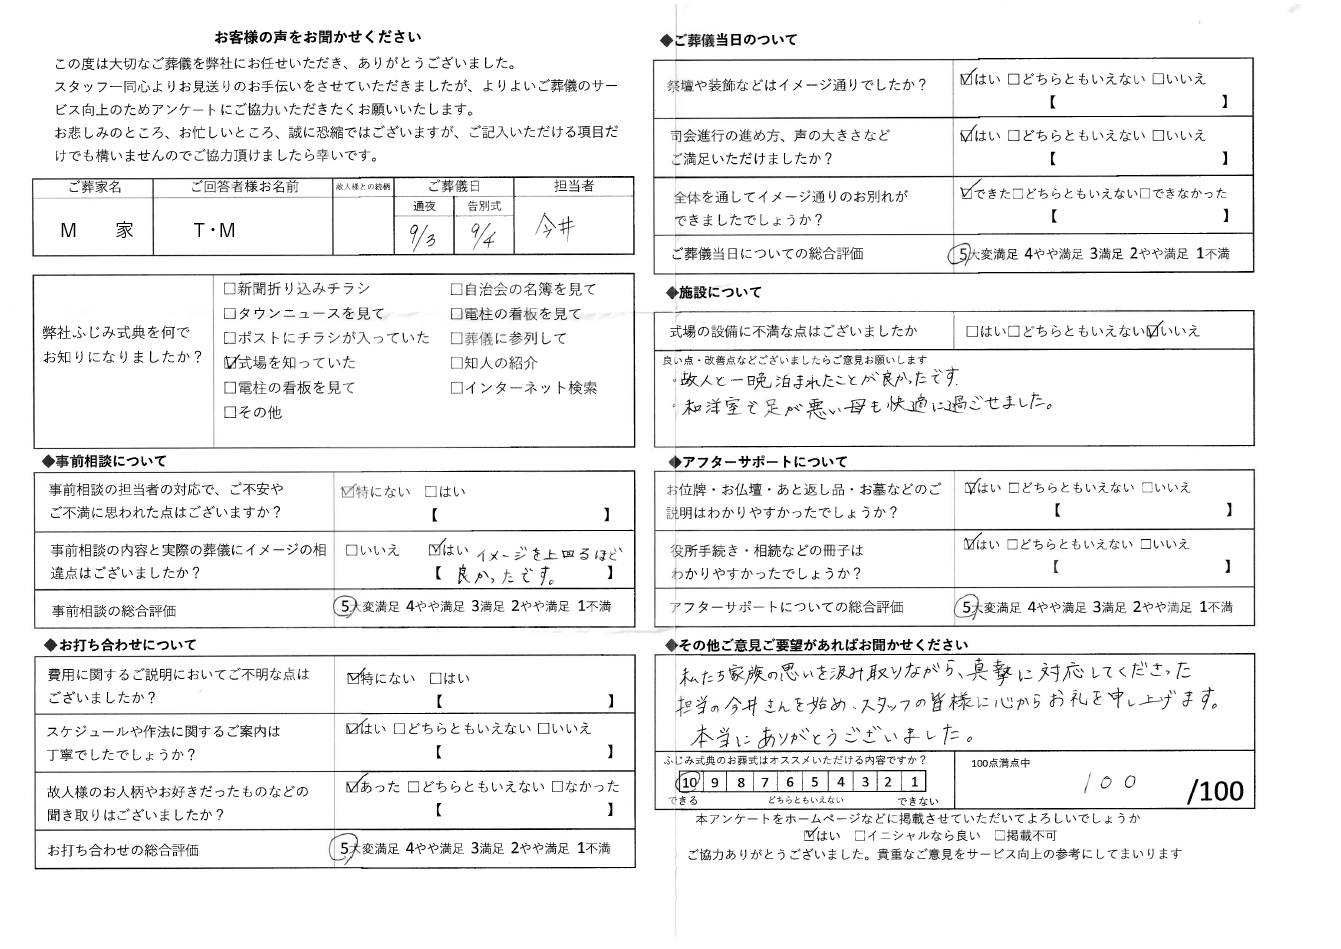 お客様の声をお聞かせください
この度は大切なご葬儀を弊社にお任せいただき、ありがとうございました。
スタッフ一同心よりお見送りのお手伝いをさせていただきましたが、よりよいご葬儀のサー
ビス向上のためアンケートにご協力いただきたくお願いいたします。
お悲しみのところ、お忙しいところ、誠に恐縮ではございますが、ご記入いただける項目だ
けでも構いませんのでご協力頂けましたら幸いです。
ご葬家名 ご回答者様お名前 故人様との続柄 ご葬儀日 担当者
通夜 告別式
M 家 T・M 9/3 9/4 今井
弊社ふじみ式典を何で
お知りになりましたか？
□新聞折り込みチラシ □自治会の名簿を見て
□タウンニュースを見て □電柱の看板を見て
□ポストにチラシが入っていた □葬儀に参列して
☑式場を知っていた □知人の紹介
□電柱の看板を見て □インターネット検索
□その他
◆事前相談について
事前相談の担当者の対応で、ご不安や
ご不満に思われた点はございますか？
☑特にない □はい
【 】
事前相談の内容と実際の葬儀にイメージの相
違点はございましたか？
□いいえ ☑はい イメージを上回るほど
【 良かったです。 】
事前相談の総合評価 5大変満足 4やや満足 3満足 2やや満足 1不満
◆お打ち合わせについて
費用に関するご説明においてご不明な点は
ございましたか？
☑特にない □はい
【 】
スケジュールや作法に関するご案内は
丁寧でしたでしょうか？
☑はい □どちらともいえない □いいえ
【 】
故人様のお人柄やお好きだったものなどの
聞き取りはございましたか？
☑あった □どちらともいえない □なかった
【 】
お打ち合わせの総合評価 5大変満足 4やや満足 3満足 2やや満足 1不満
◆ご葬儀当日のついて
祭壇や装飾などはイメージ通りでしたか？ ☑はい □どちらともいえない □いいえ
【 】
司会進行の進め方、声の大きさなど
ご満足いただけましたか？
☑はい □どちらともいえない □いいえ
【 】
全体を通してイメージ通りのお別れが
できましたでしょうか？
☑できた□どちらともいえない□できなかった
【 】
ご葬儀当日についての総合評価 5大変満足 4やや満足 3満足 2やや満足 1不満
◆施設について
式場の設備に不満な点はございましたか □はい□どちらともいえない☑いいえ
良い点・改善点などございましたらご意見お願いします
・故人と一晩泊まれたことが良かったです。
・和洋室で足が悪い母も快適に過ごせました。
◆アフターサポートについて
お位牌・お仏壇・あと返し品・お墓などのご
説明はわかりやすかったでしょうか？
☑はい □どちらともいえない □いいえ
【 】
役所手続き・相続などの冊子は
わかりやすかったでしょうか？
☑はい □どちらともいえない □いいえ
【 】
アフターサポートについての総合評価 5大変満足 4やや満足 3満足 2やや満足 1不満
◆その他ご意見ご要望があればお聞かせください
私たち家族の思いを汲み取りながら、真摯に対応してくださった
担当の今井さんを始め、スタッフの皆様に心からお礼を申し上げます。
本当にありがとうございました。
ふじみ式典のお葬式はオススメいただける内容ですか？ 100点満点中
10 9 8 7 6 5 4 3 2 1
できる どちらともいえない できない
100 /100
本アンケートをホームページなどに掲載させていただいてよろしいでしょうか
☑はい □イニシャルなら良い □掲載不可
ご協力ありがとうございました。貴重なご意見をサービス向上の参考にしてまいります